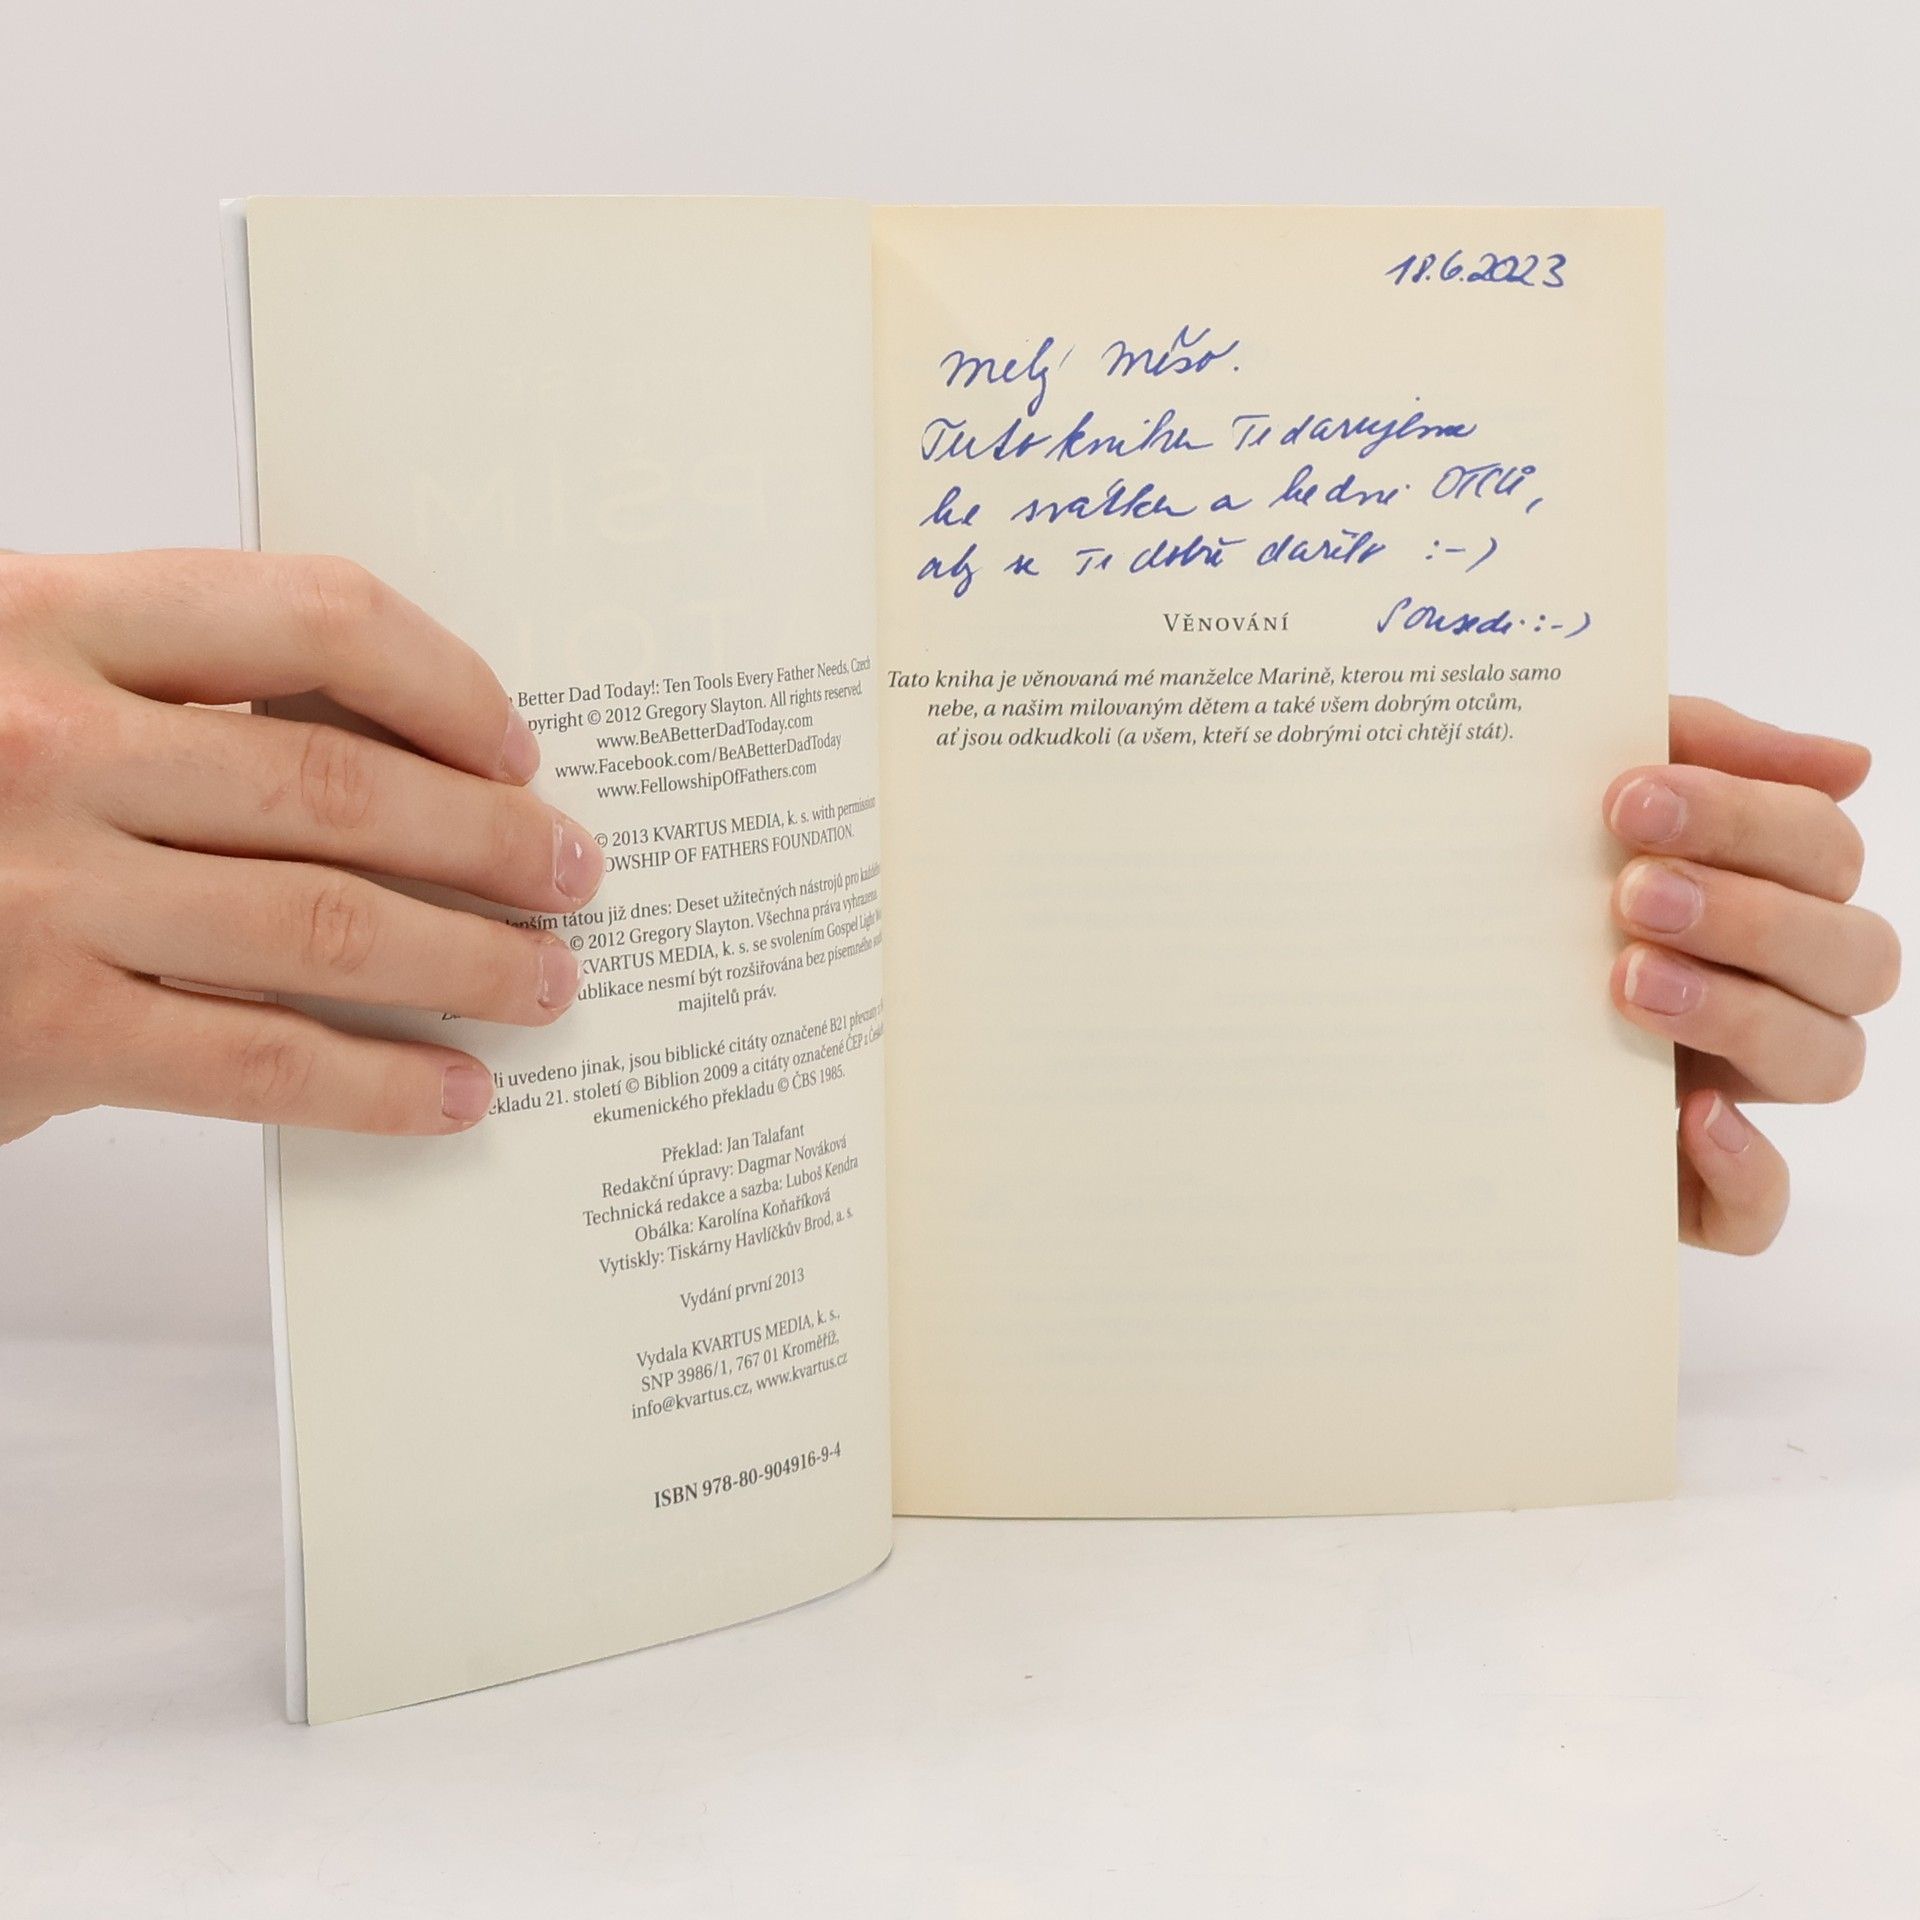 Better Dad Today!: Ten Tools Every Father Needs, Czech
pyright © 2012 Gregory Slayton. All rights reserved.
www.BeABetterDadToday.com
www.Facebook.com/BeABetterDadToday
www.FellowshipOfFathers.com
© 2013 KVARTUS MEDIA, k. s. with permission
OWSHIP OF FATHERS FOUNDATION.
lepším tátou již dnes: Deset užitečných nástrojů pro každého
© 2012 Gregory Slayton. Všechna práva vyhrazena.
KVARTUS MEDIA, k. s. se svolením Gospel Light
ublikace nesmí být rozšiřována bez písemného
majitelů práv.
li uvedeno jinak, jsou biblické citáty označené B21 převzaty z
ekladu 21. století © Biblion 2009 a citáty označené ČEP z
ekumenického překladu © ČBS 1985.
Překlad: Jan Talafant
Redakční úpravy: Dagmar Nováková
Technická redakce a sazba: Luboš Kendra
Obálka: Karolína Koňaříková
Vytiskly: Tiskárny Havlíčkův Brod, a. s.
Vydání první 2013
Vydala KVARTUS MEDIA, k. s.,
SNP 3986/1, 767 01 Kroměříž,
info@kvartus.cz, www.kvartus.cz
ISBN 978-80-904916-9-4
18.6.2023
Milý Míšo.
Tuto knihu Ti darujeme
ke svátku a ke dni OTCŮ,
aby se Ti dobře dařilo :-)
Sousedi :-)
VĚNOVÁNÍ
Tato kniha je věnovaná mé manželce Marině, kterou mi seslalo samo
nebe, a našim milovaným dětem a také všem dobrým otcům,
ať jsou odkudkoli (a všem, kteří se dobrými otci chtějí stát).